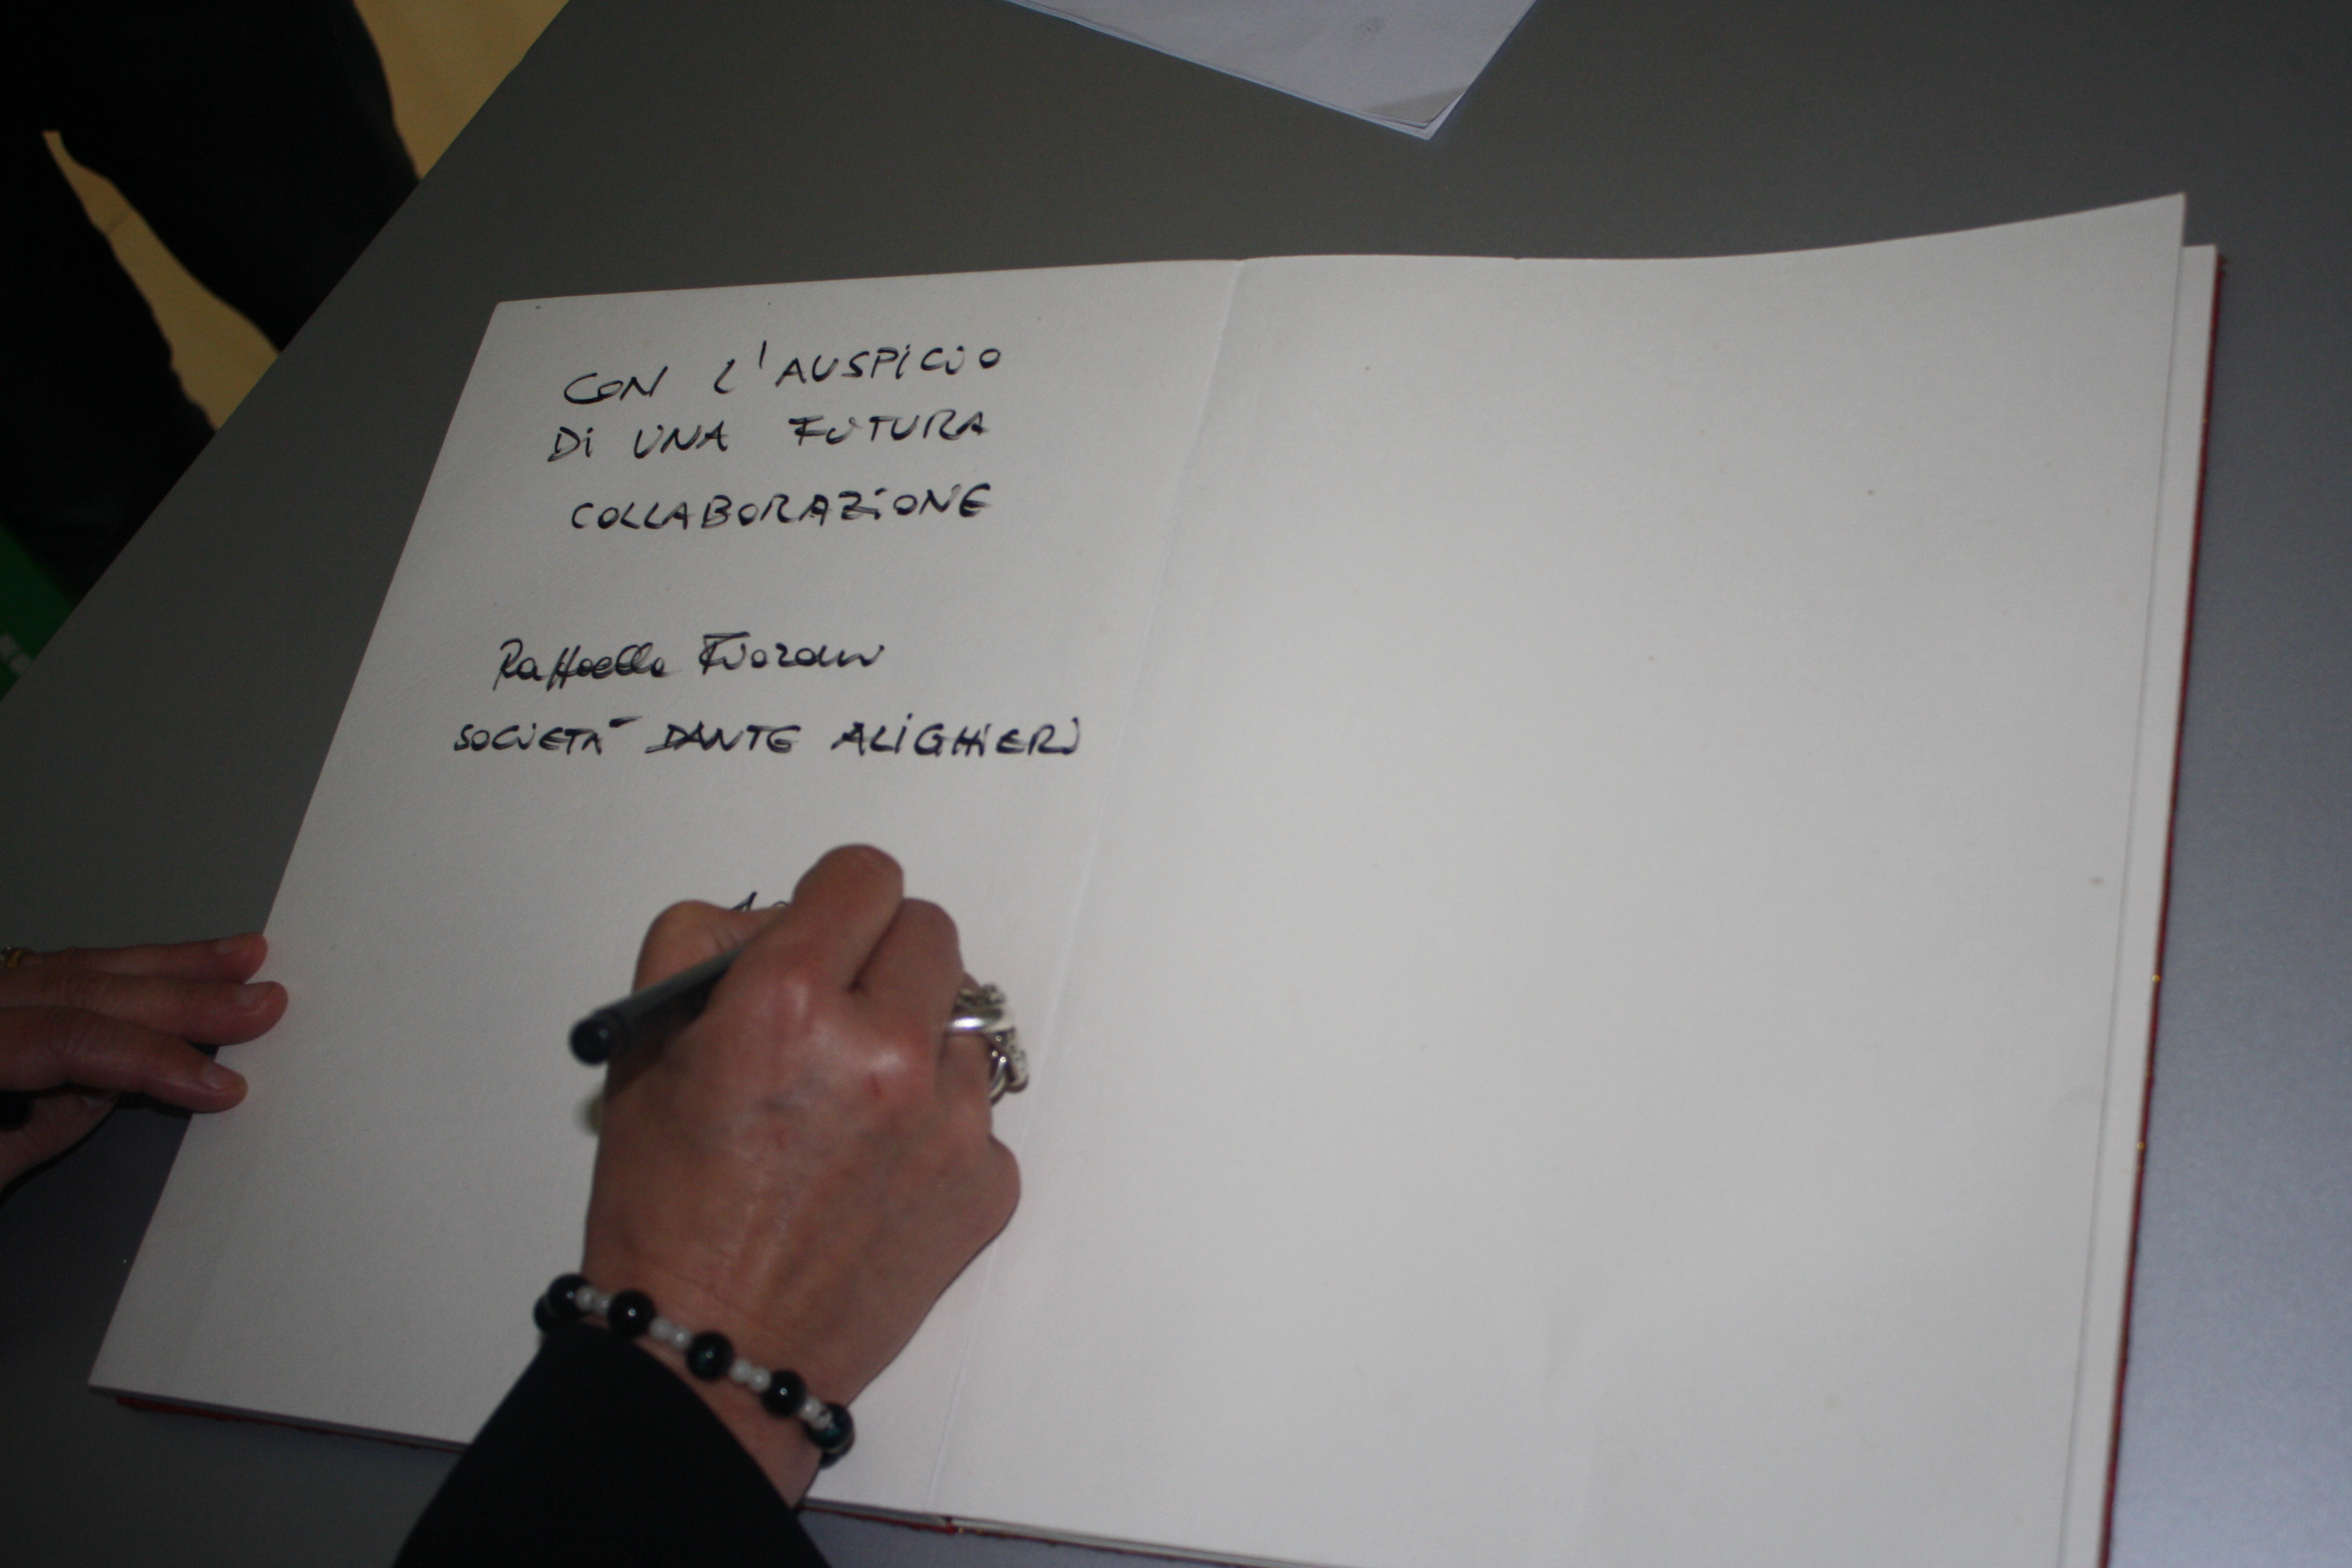 CON L'AUSPICIO
Di UNA FUTURA
COLLABORAZiONE
Raffaella
SOCIETA' DANTE ALiGHiERI